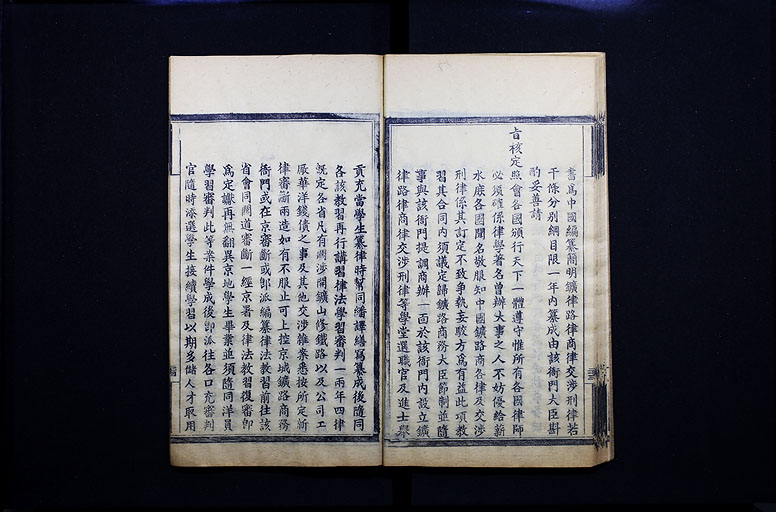 書爲中國編纂簡明鑛律路律商律交涉刑律若
干條分別綱目限一年內纂成由該衙門大臣斟
酌妥善請
旨核定照會各國頒行天下一體遵守惟所有各國律師
必須確係律學著名曾辦大事之人不妨優給薪
水庶各國聞名敬服知中國鑛路商各律及交涉
刑律係其訂定不致爭執妄駁方爲有益此項教
習其合同內須議定歸鑛路商務大臣節制並隨
事與該衙門提調商辦一面於該衙門內設立鑛
律路律商律交涉刑律等學堂選職官及進士舉
貢充當學生纂律時幫同繙譯繕寫纂成後隨同
各該教習再行講習律法學習審判一兩年四律
旣定各省凡有關涉開鑛山修鐵路以及公司工
廠華洋錢債之事及其他交涉雜案悉按所定新
律審斷兩造如有不服止可上控京城鑛路商務
衙門或在京審斷或卽派編纂律法教習前往該
省會同關道審斷一經京署及律法教習復審卽
爲定讞再無翻異京地學生畢業並須隨同洋員
學習審判此等案件學成後卽派往各口充審判
官隨時添選學生接續學習以期多儲人才取用